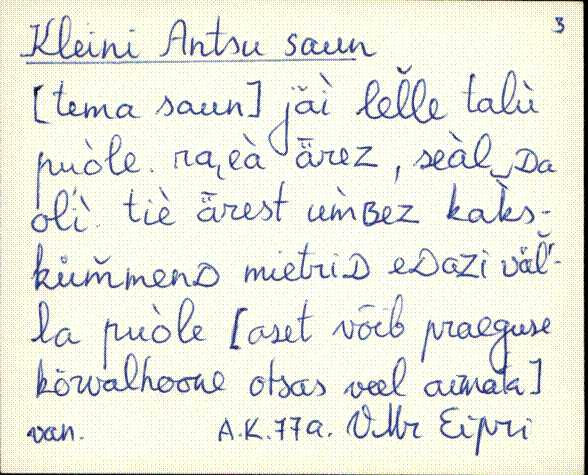 3
Kleini Antsu saun
[tema saun] jäì̆ lel̆le talù
puòle. ra,eà ǟrez, seàl‿Da
olì. tiè ǟrest ùmBEZ kaks-
kŭm̆menD mietriD eDazi väl̆-
la puòle [aset võib praeguse
kõrvalhoone otsas veel aimata]
van. A.K. 77a. VMr Eipri